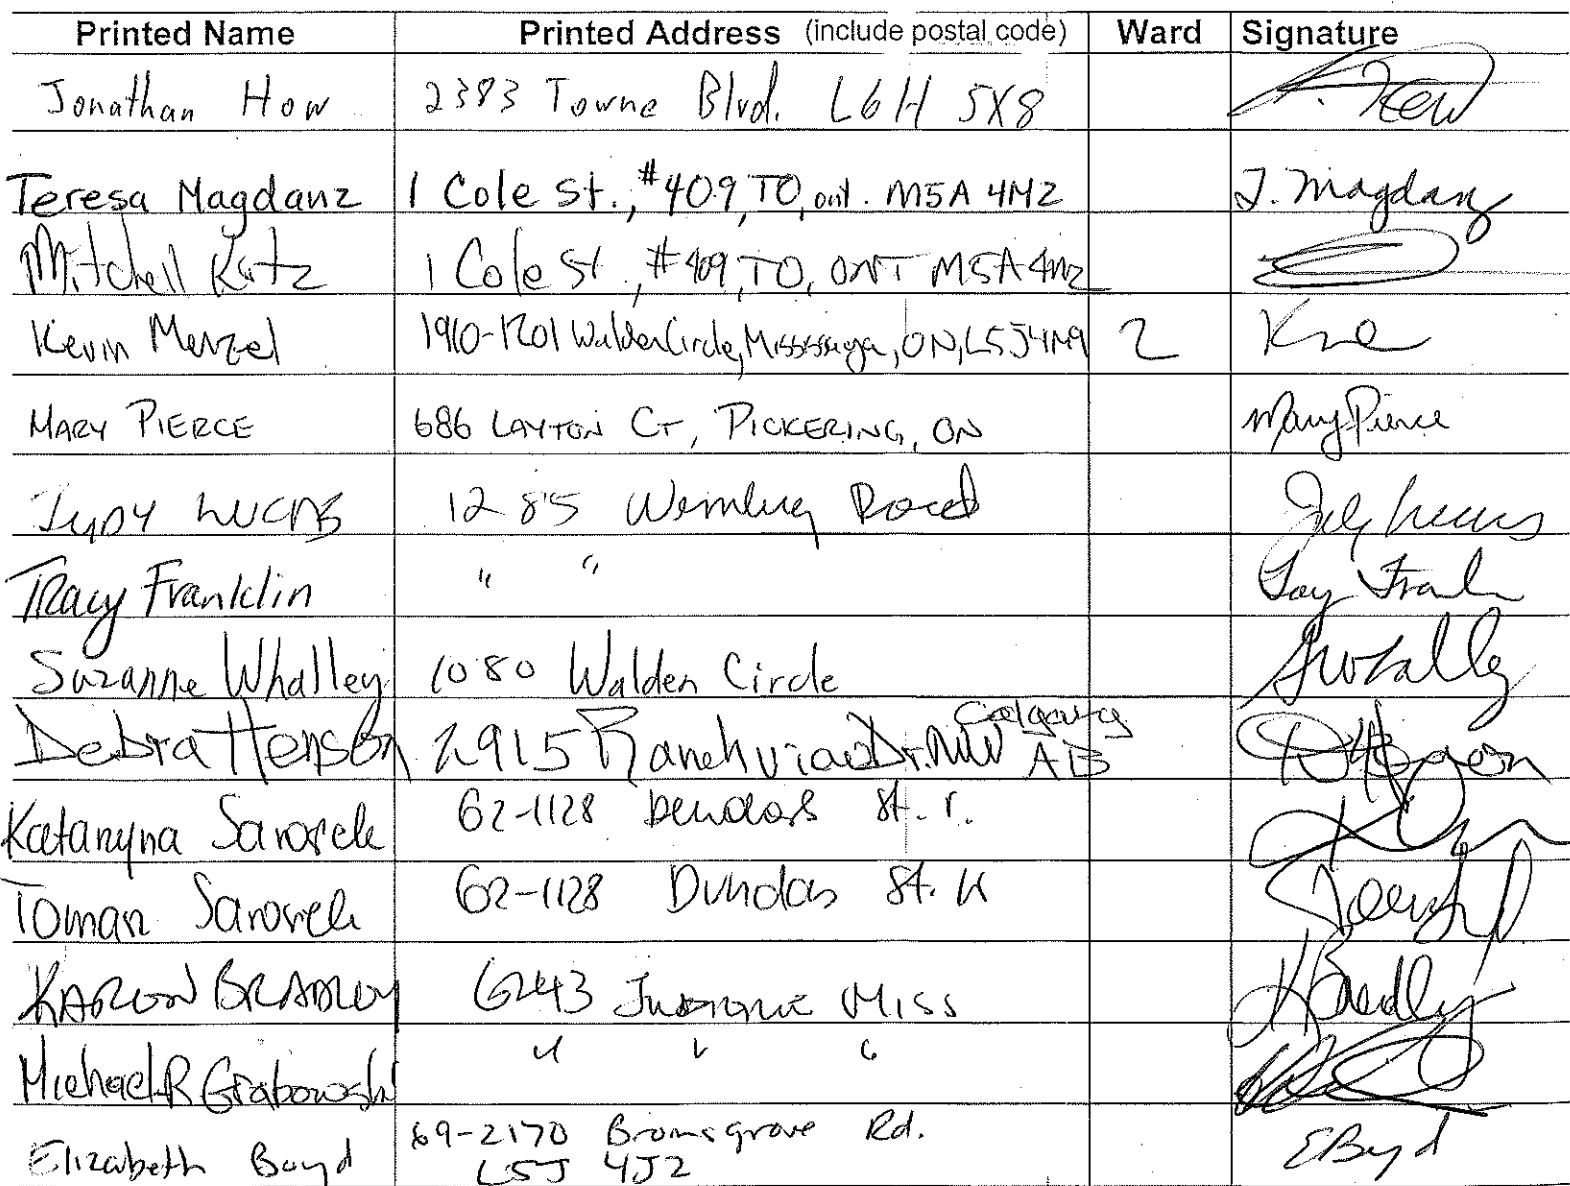 Printed Name Printed Address (include postal code) Ward Signature
Jonathan How 2383 Towne Blvd. L6H 5X8 How
Teresa Magdanz 1 Cole St., #409, TO, ont. M5A 4M2 T. Magdanz
Mitchell Katz 1 Cole St., #409, TO, ONT M5A 4M2
Kevin Menzel 1910-1201 Walden Circle, Mississauga, ON, L5J 4M9 2
MARY PIERCE 686 LAYTON CT, PICKERING, ON Mary Pierce
JUDY LUCAS 1285 Road Lucas
Tracy Franklin " "
Suzanne Whalley 1080 Walden Circle SWhalley
Debra Henson 2915 Ranchview Dr. NW Calgary AB
Sarosiek 62-1128 Dundas St.
Sarosiek 62-1128 Dundas St. W
KARON BRADLEY 6243 Miss KBradley
Michael R Grabowski " " "
Elizabeth Boyd 69-2170 Bromsgrove Rd. EBoyd
L5J 4J2